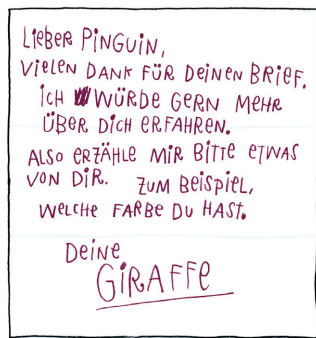 LiEBER PiNGUiN,
ViELEN DANK FÜR DEiNEN BRiEF.
iCH WÜRDE GERN MEHR
ÜBER DiCH ERFAHREN.
ALSO ERZÄHLE MiR BiTTE ETWAS
VON DiR. ZUM BEiSPiEL,
WELCHE FARBE DU HAST.
DEiNE
GiRAFFE